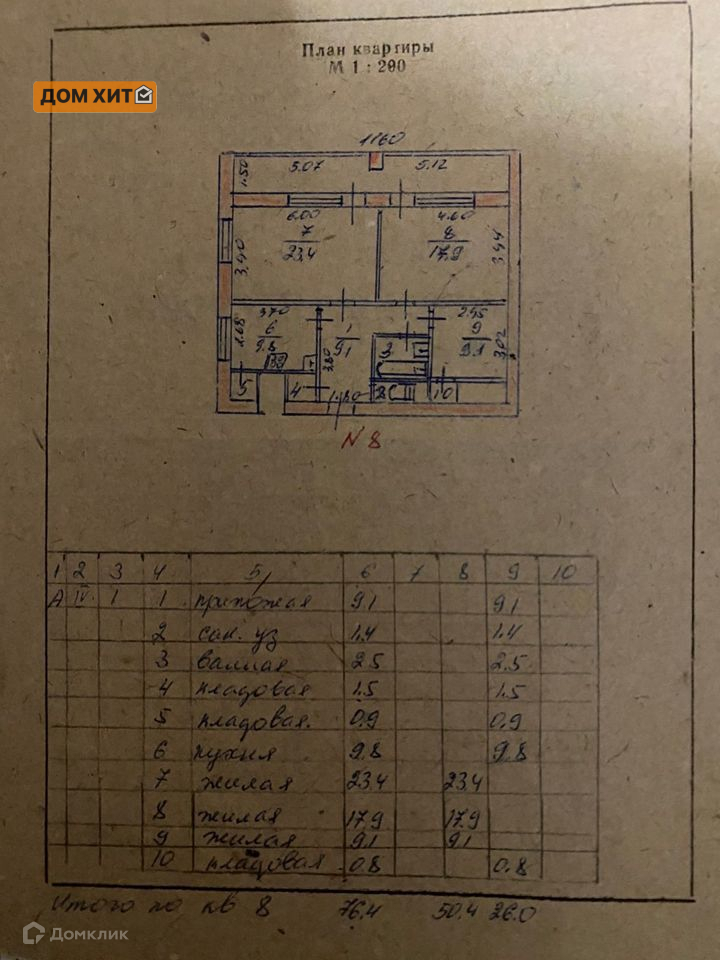 План квартиры
М 1 : 200
ДОМ ХИТ
1160
1.50 5.07 5.12
6.00 4.60
7 8
3.90 23.4 17.9 3.44
3.70 2.45
6 1 9
9.8 9.1 3.80 3 9.1 3.02
5 4 1.80 2 10
N 8
1 2 3 4 5 6 7 8 9 10
А IV. 1 1 прихожая 9.1 9.1
2 сан. уз 1.4 1.4
3 ванная 2.5 2.5
4 кладовая 1.5 1.5
5 кладовая. 0.9 0.9
6 кухня 9.8 9.8
7 жилая 23.4 23.4
8 жилая 17.9 17.9
9 жилая 9.1 9.1
10 кладовая 0.8 0.8
Итого по кв 8 76.4 50.4 26.0
Домклик